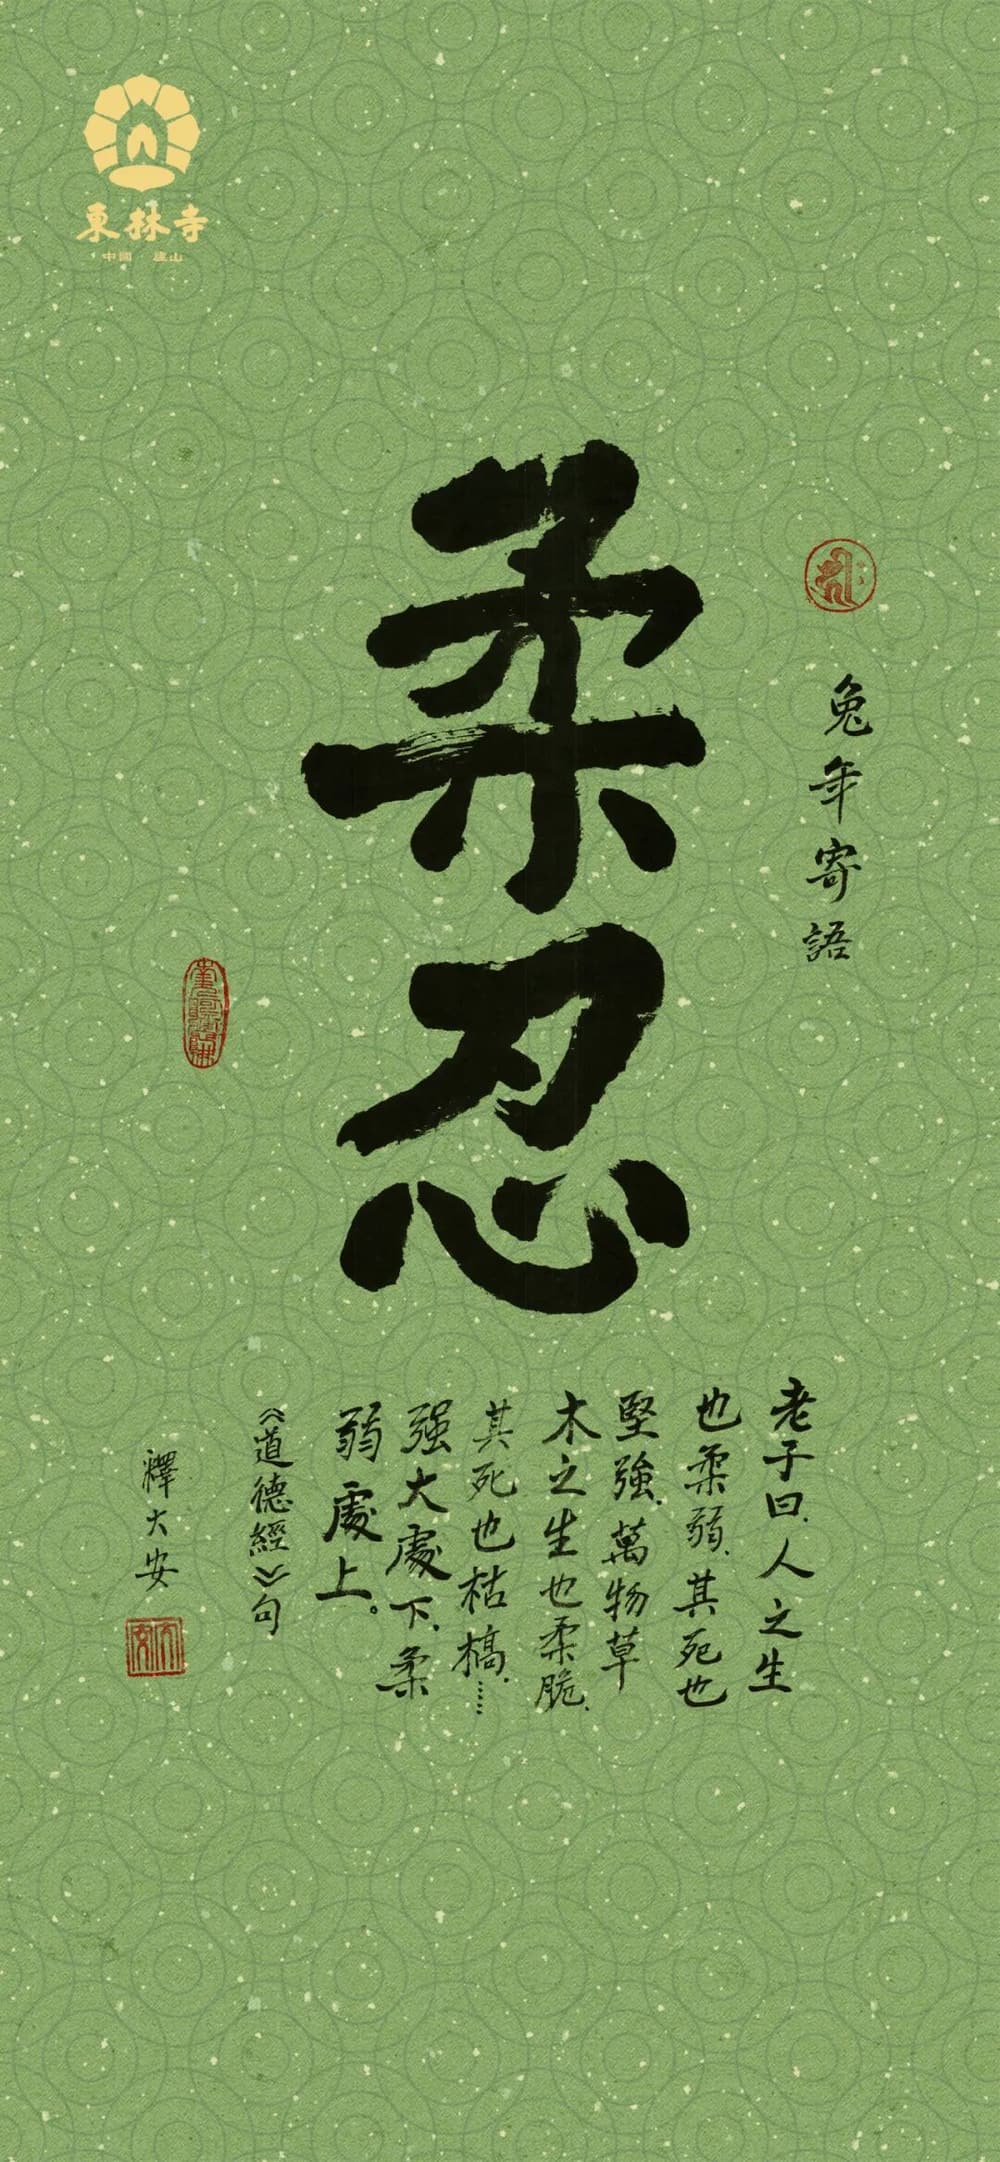 東林寺
中國 廬山
兔年寄語
柔忍
老子曰、人之生
也柔弱、其死也
堅強、萬物草
木之生也柔脆、
其死也枯槁、……
强大處下、柔
弱處上。
《道德經》句
釋大安
大安